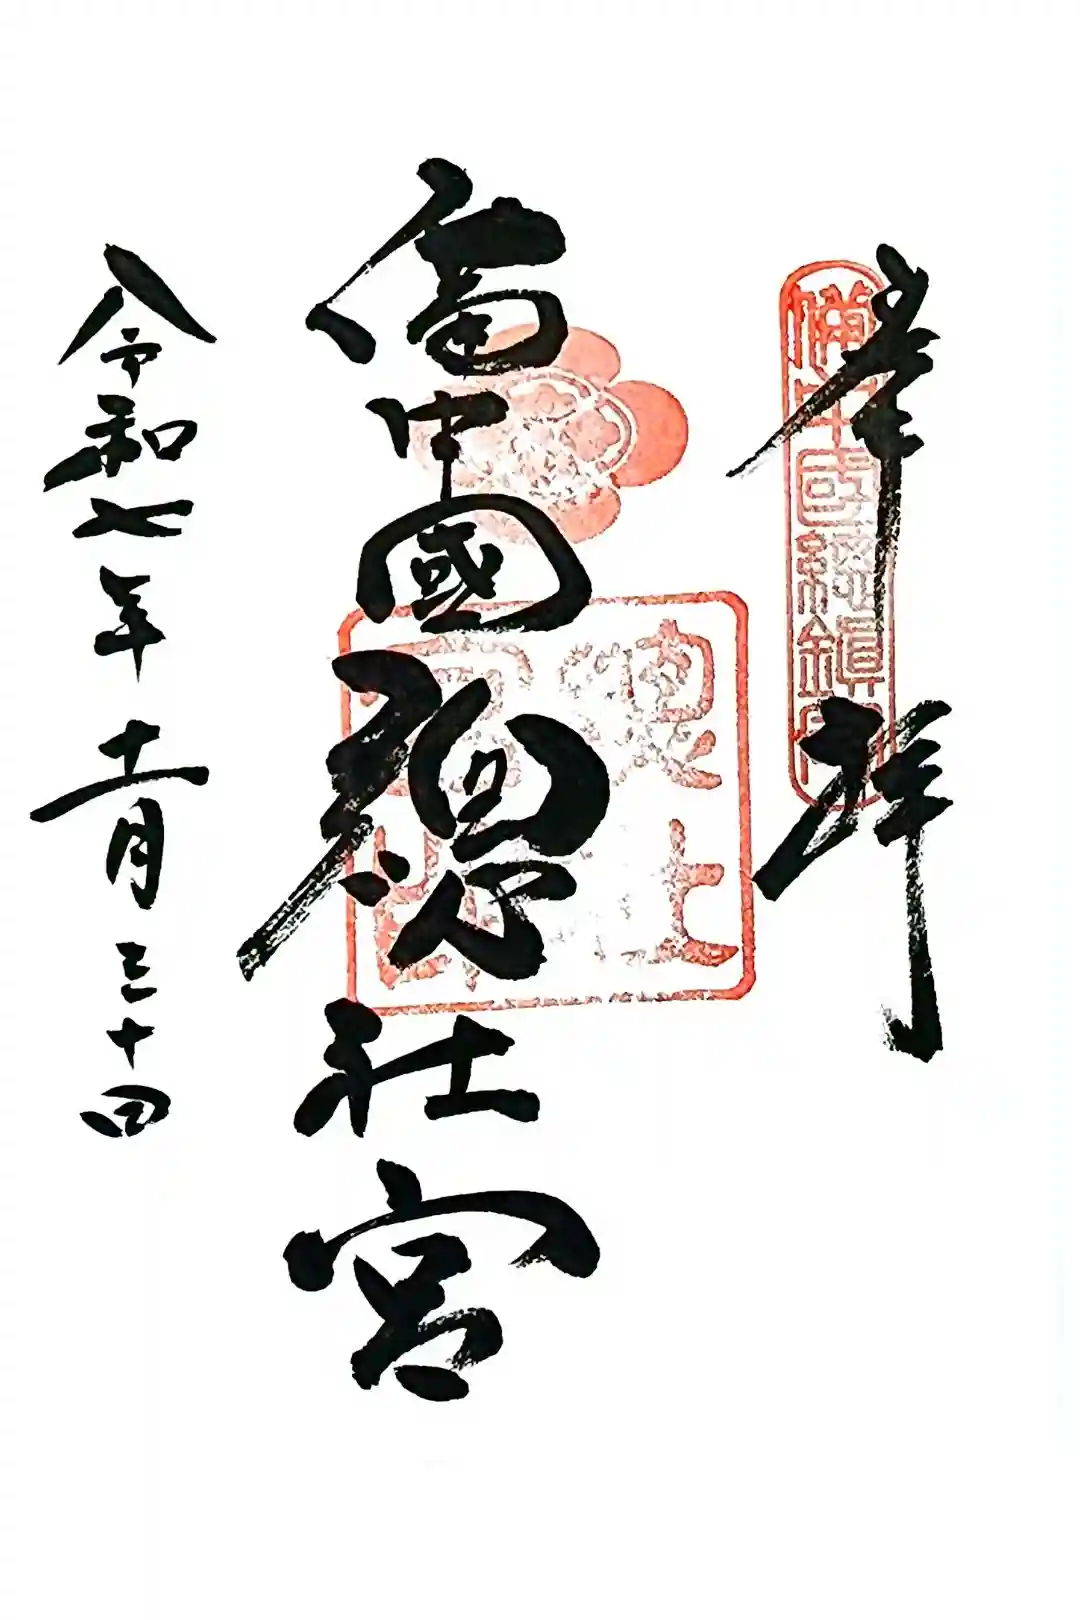 奉拝
備中國總鎮守
備中國總社宮
令和七年十一月三十日